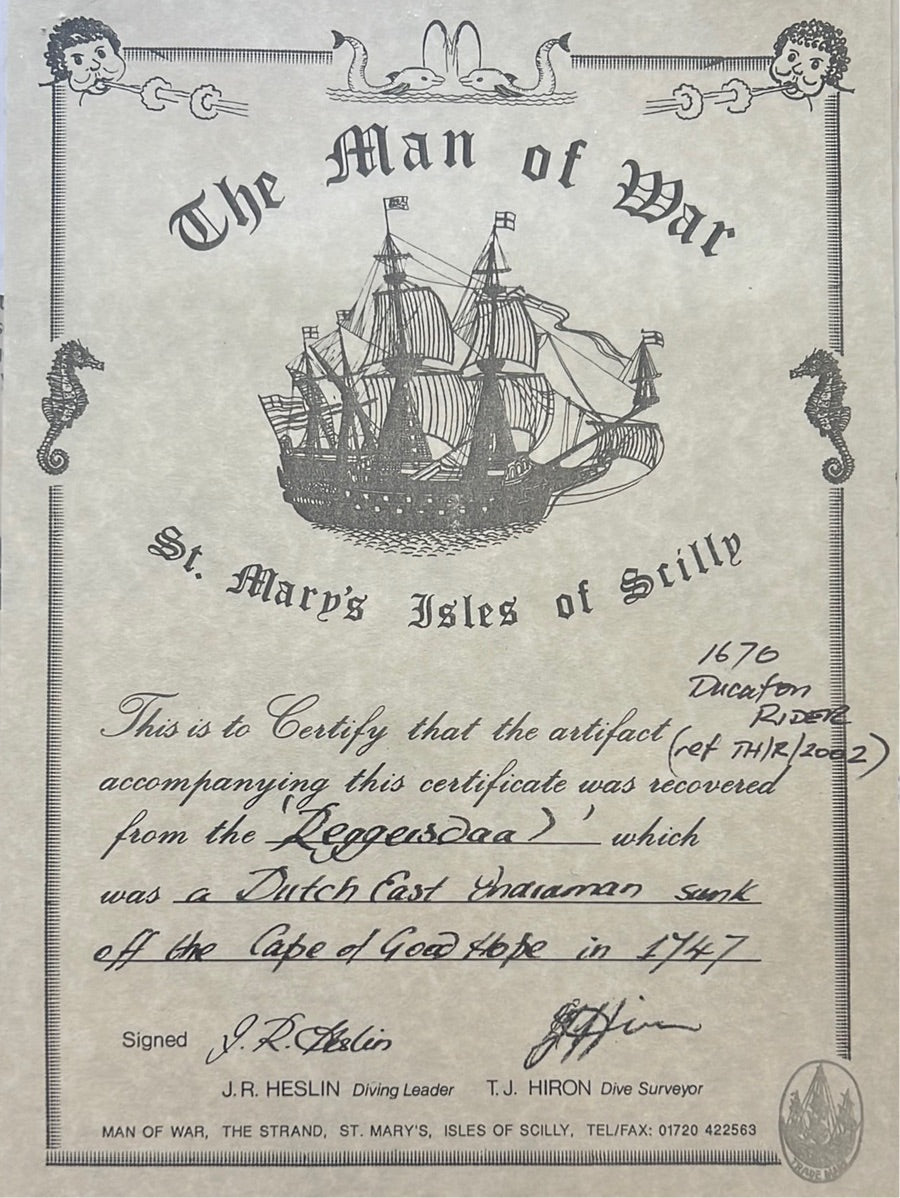 The Man of War
St. Mary's Isles of Scilly
1670
Ducaton
RIDER
(ref TH/R/2002)
This is to Certify that the artifact
accompanying this certificate was recovered
from the 'Reggersdaal' which
was a Dutch East Indiaman sunk
off the Cape of Good Hope in 1747
Signed J.R. Heslin
J.R. HESLIN Diving Leader T.J. HIRON Dive Surveyor
MAN OF WAR, THE STRAND, ST. MARY'S, ISLES OF SCILLY, TEL/FAX: 01720 422563
TRADE MARK